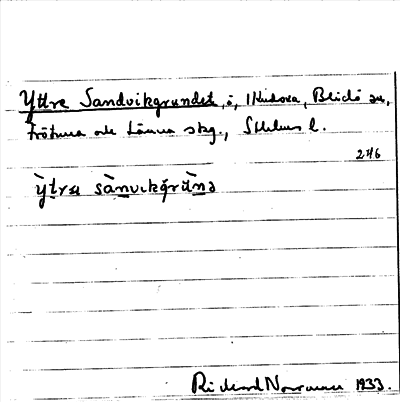 Yttre Sandvikgrundet, ö, Kudoxa, Blidö sn,
Frötuna och Länna skg., Sthlms l.
246
ỳtrɛ sànvikgrúnə
Richard Norrman 1933.